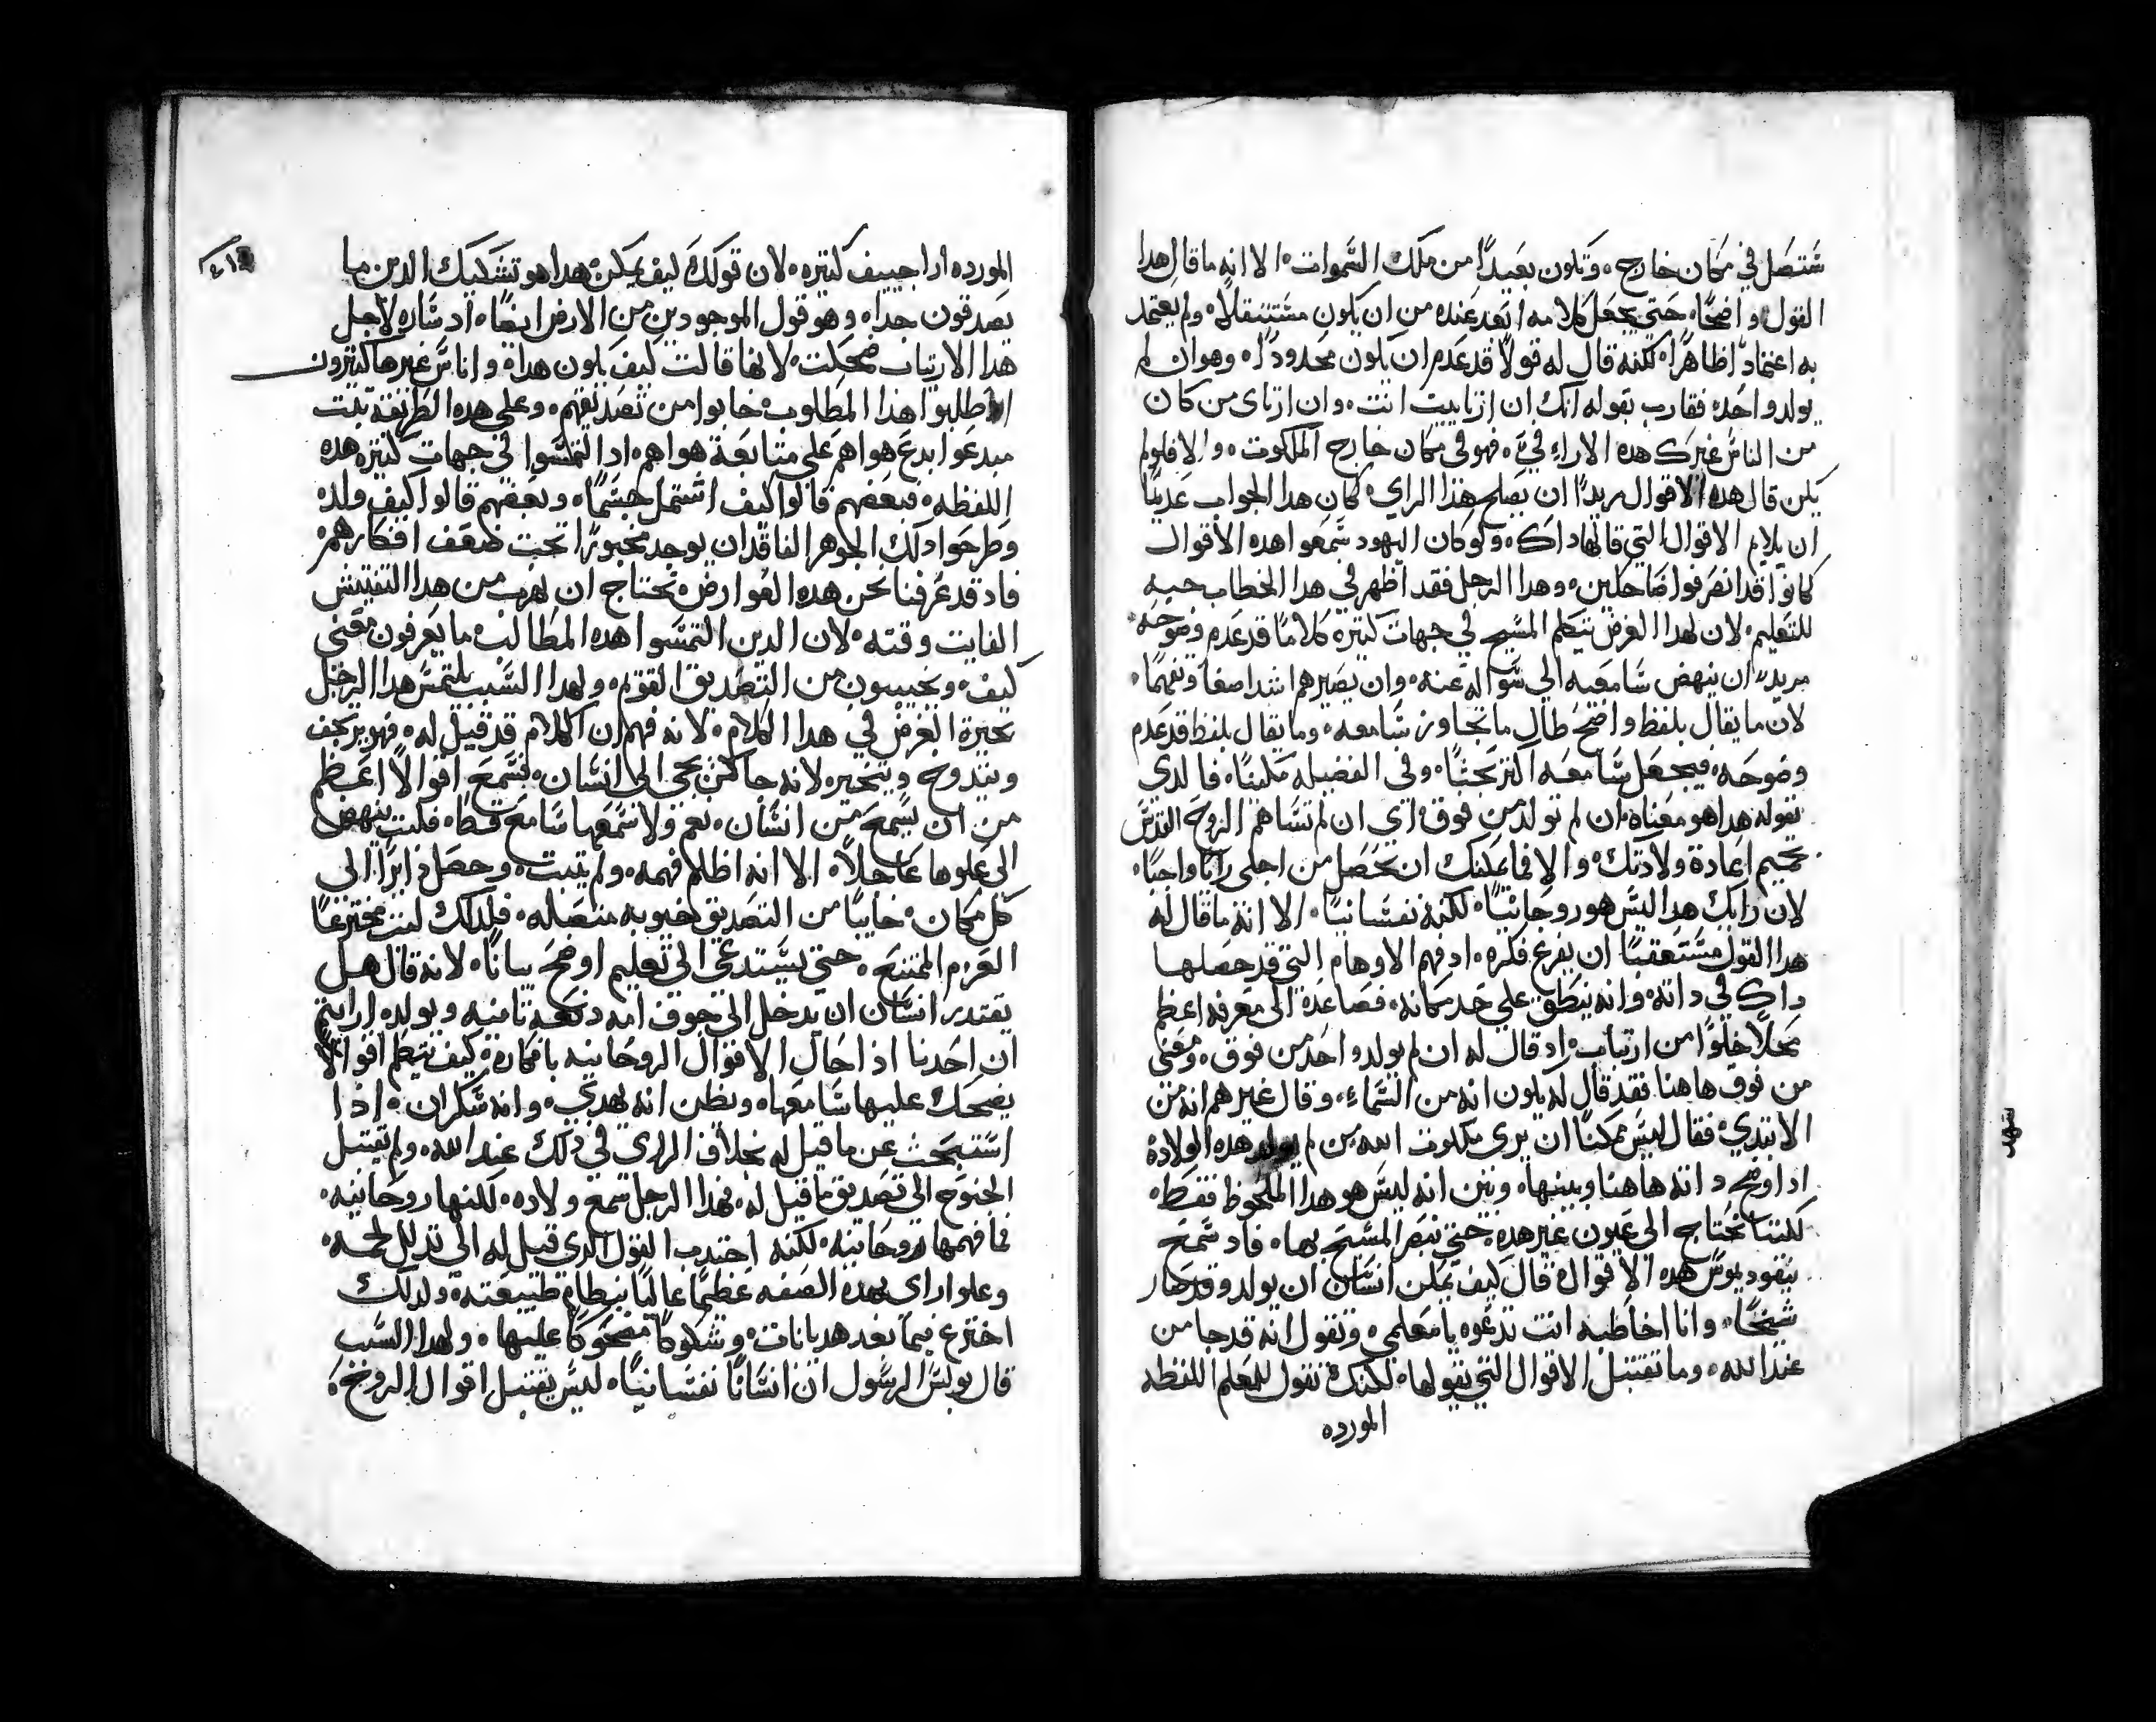 ستحصل في مكان خارج، وتكون بعيدًا من ملك السموات، الا انه ما قال هدا
القول واضحًا، حتى يجعل كلامه ابعد عنده من ان يكون مستثقلاً، ولم يعتمد
به اعتمادًا ظاهرًا، لكنه قال له قولاً قد عدم ان يكون محدودًا، وهو ان لم
يولد واحد، فقارب بقوله انك ان ارتاييت انت، وان ارتاى من كان
من الناس غيرك هده الاراء فيّ، فهو في مكان خارج الملكوت، والا فلو لم
يكن قال هده الاقوال مريدًا ان يصلح هذا الراي، كان هدا الجواب عديمًا
ان يلايم الاقوال التي قالها داك، ولو كان اليهود سمعوا هده الاقوال
كانوا قد انصرفوا ضاحكين، وهدا الرجل فقد اظهر في هدا الخطاب حبه
للتعليم، لان لهدا الغرض يتكلم المسيح في جهات كتيره كلامًا قد عدم وضوحه،
مريدًا ان ينهض سامعيه الي سواله عنه، وان يصيرهم اشد اصغا وتفهمًا،
لان ما يقال بلفظ واضح طال ما تجاوز سامعه، وما يقال بلفظ قد عدم
وضوحه، فيجعل سامعه اكتر بحثًا، وفي الفضيله مكينًا، فالدى
يقوله هدا هو معناه، ان لم تولد من فوق، اي ان لم تساهم الروح القدس
بحميم اعادة ولادتك، والا فما يمكنك ان تحصل من اجلى رايًا واجبًا،
لان رايك هدا ليس هو روحانيًا، لكنه نفسانيًا، الا انه ما قال له
هدا القول مستعقبًا ان يفرع فكره، اد فهم الاوهام التي قد حصلها
داك في داته، وانه ينطق علي حد مكانه، فصاعده الى معرفه اعظم
محلاً خلوًا من ارتياب، اد قال له ان لم يولد واحد من فوق، ومعنى
من فوق هاهنا فقد قال له يكون انه من السماء، وقال غيرهم انه من
الابتدي، فقال ليس ممكنًا ان يرى ملكوت الله من لم يولد هده الولاده
اد اوضح داته هاهنا وبينها، وبين انه ليس هو هدا الملحوظ فقط،
لكننا نحتاج الى عيون غير هده، حتى نبصر المسيح بها، فاد سمع
نيقود يموس هده الاقوال، قال كيف يمكن انسان ان يولد وقد صار
شيخًا، وانا اخاطبه انت تدعوه يا معلمي، وتقول انه قد جا من
عند الله، وما تقتبل الاقوال التي يقولها، لكنك تقول للمعلم اللفظه
المورده
المورده اراجيف كتيره، لان قولك كيف يمكن هدا هو تشكيك الدين ما
يصدقون جدا، وهو قول الموجودين من الارض ايضًا، اد ساره لاجل
هدا الارتياب ضحكت، لانها قالت كيف يكون هدا، واناس غيرها كتيرون
طلبوا هذا المطلوب، خابوا من تصديقهم، وعلى هده الطريقة تبت
مبدعوا بدع هواهم على متابعة هواهم، اد التمسوا في جهات كتيره هده
اللفظه، فبعضهم قالوا كيف اشتمل جسمًا، وبعضهم قالوا كيف ولد،
وطرحوا دلك الجوهر الفاقد ان يوجد مخبورًا تحت ضعف افكارهم،
فاد قد عرفنا نحن هده العوارض، نحتاج ان نهرب من هدا التفتيش
الفايت وقته، لان الدين التمسوا هده المطالب، ما يعرفون معنى
كيف، ويخيبون من التصديق القويم، ولهدا السبب يلتمس هدا الرجل
بحيرة الغرض في هدا الكلام، لانه فهم ان الكلام قد قيل له، فهو يرتجف
ويتدوخ ويتحير، لانه جا كمن يجي الى انسان، فسمع اقوالاً اعظم
من ان يسمع من انسان، نعم ولا سمعها سامع قط، فلبت ينهض
الى علوها عاجلاً، الا انه اظلم فهمه، ولم يتبت، وحصل دايرًا الى
كل مكان، خايبًا من التصديق خيبوبه متصله، فلدلك لبث مخترعًا
العزم الممتنع، حتى يستدعي الى تعليم اوضح بيانًا، لانه قال هل
يقتدر انسان ان يدخل الى جوف امه دفعه تانيه، ويولد، ارايتم
ان احدنا اذا احال الاقوال الروحانيه بافكاره، كيف يتكلم اقوالاً
يضحك عليها سامعها، ويظن انه يهدي، وانه سكران، اذا
استبحث عن ما قيل له بخلاف الراي في دلك عند الله، ولم يقتبل
الجنوح الى تصديق ما قيل له، فهدا الرجل سمع ولاده، لكنها روحانيه،
فما فهمها روحانيه، لكنه اجتدب القول الدى قيل له الى تدلل لحمه،
وعلوا راى بهده الصفه عظيمًا عاليًا بنظام طبيعته، ولدلك
اخترع فيما بعد هديانات، وشكوكًا مضحوكًا عليها، ولهدا السبب
قال بولس الرسول ان انسانًا نفسانيًا، ليس يقتبل اقوال الروح،